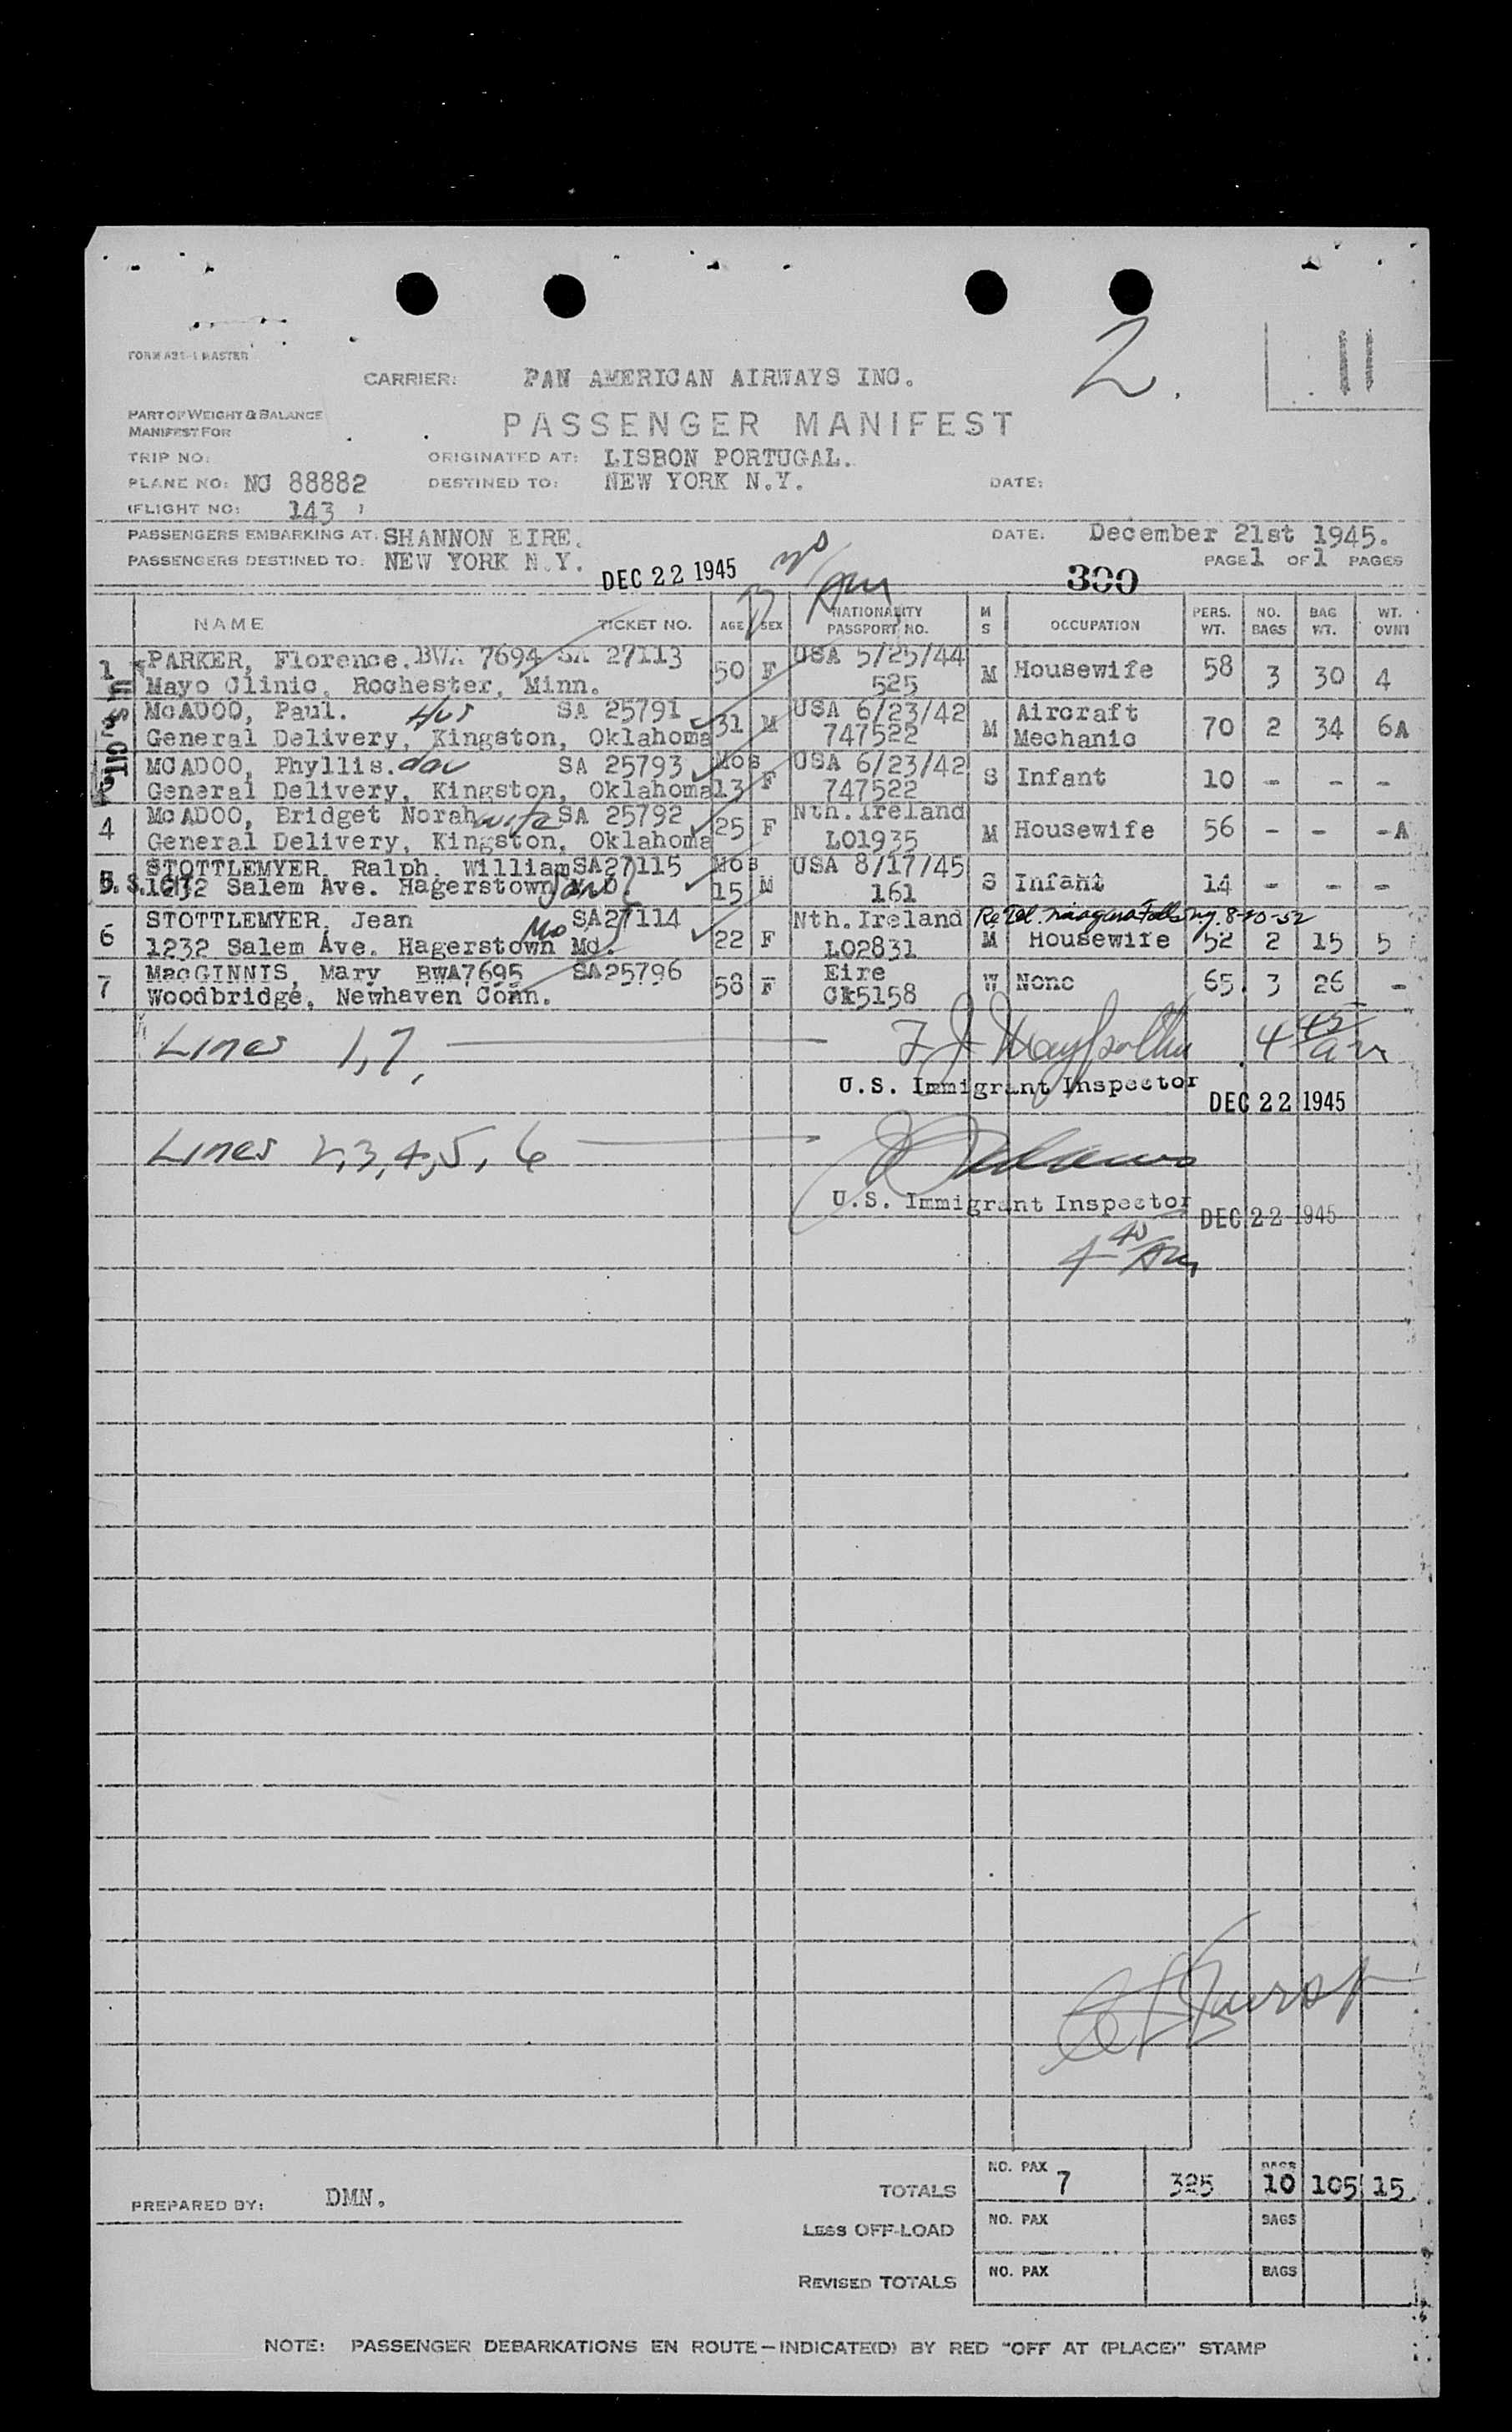 2.
11
FORM A21-1 MASTER
CARRIER: PAN AMERICAN AIRWAYS INC.
PART OF WEIGHT & BALANCE
MANIFEST FOR
PASSENGER MANIFEST
TRIP NO: ORIGINATED AT: LISBON PORTUGAL.
PLANE NO: NC 88882 DESTINED TO: NEW YORK N.Y. DATE:
(FLIGHT NO: 143 )
PASSENGERS EMBARKING AT: SHANNON EIRE. DATE: December 21st 1945.
PASSENGERS DESTINED TO: NEW YORK N.Y. PAGE 1 OF 1 PAGES
DEC 22 1945 300
NAME TICKET NO. AGE SEX NATIONALITY PASSPORT NO. M S OCCUPATION PERS. WT. NO. BAGS BAG WT. WT. OVNT
U S CIT
1 PARKER, Florence. BWA 7694 SA 27113 50 F USA 5/25/44 M Housewife 58 3 30 4
Mayo Clinic, Rochester, Minn. 525
2 McADOO, Paul. Hus SA 25791 31 M USA 6/23/42 M Aircraft 70 2 34 6A
General Delivery, Kingston, Oklahoma 747522 Mechanic
3 MCADOO, Phyllis. dau SA 25793 Mos F USA 6/23/42 S Infant 10 - - -
General Delivery, Kingston, Oklahoma 13 747522
4 McADOO, Bridget Norah wife SA 25792 25 F Nth.Ireland M Housewife 56 - - -A
General Delivery, Kingston, Oklahoma LO1935
5 STOTTLEMYER, Ralph. William SA27115 Mos M USA 8/17/45 S Infant 14 - - -
U.S. CIT. 1232 Salem Ave. Hagerstown 15 161
6 STOTTLEMYER, Jean Mo SA27114 22 F Nth.Ireland Re Tel. Niagara Falls NY. 8-10-52
1232 Salem Ave. Hagerstown Md. LO2831 M Housewife 52 2 15 5
7 MacGINNIS, Mary BWA7695 SA25796 58 F Eire W None 65. 3 26 -
Woodbridge, Newhaven Conn. Ck5158
Lines 1,7, 4 45 am
U.S. Immigrant Inspector DEC 22 1945
Lines 2,3,4,5,6
U.S. Immigrant Inspector DEC 22 1945
4 40 AM
PREPARED BY: DMN. TOTALS NO. PAX 7 325 BAGS 10 105 15
LESS OFF-LOAD NO. PAX BAGS
REVISED TOTALS NO. PAX BAGS
NOTE: PASSENGER DEBARKATIONS EN ROUTE—INDICATE(D) BY RED "OFF AT (PLACE)" STAMP